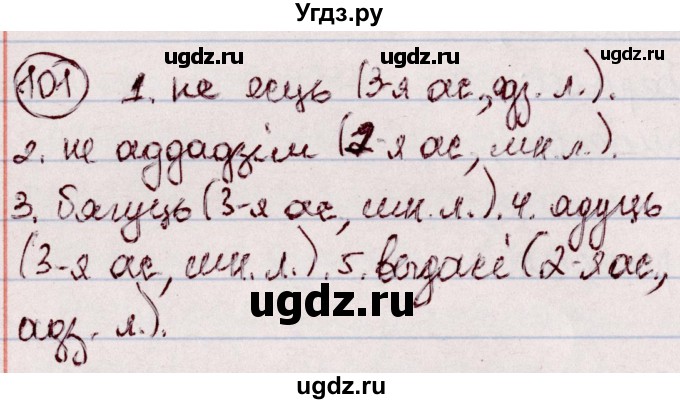 Угдз.ру
ugdz.ru ugdz.ru
101 1. не есць (3-я ас., адз. л.).
2. не аддадзім (1-я ас., мн. л.).
ugdz.ru ugdz.ru
3. бягуць (3-я ас., мн. л.). 4. ядуць
(3-я ас., мн. л.). 5. выдасі (2-я ас.,
ugdz.ru
адз. л.).
ugdz.ru